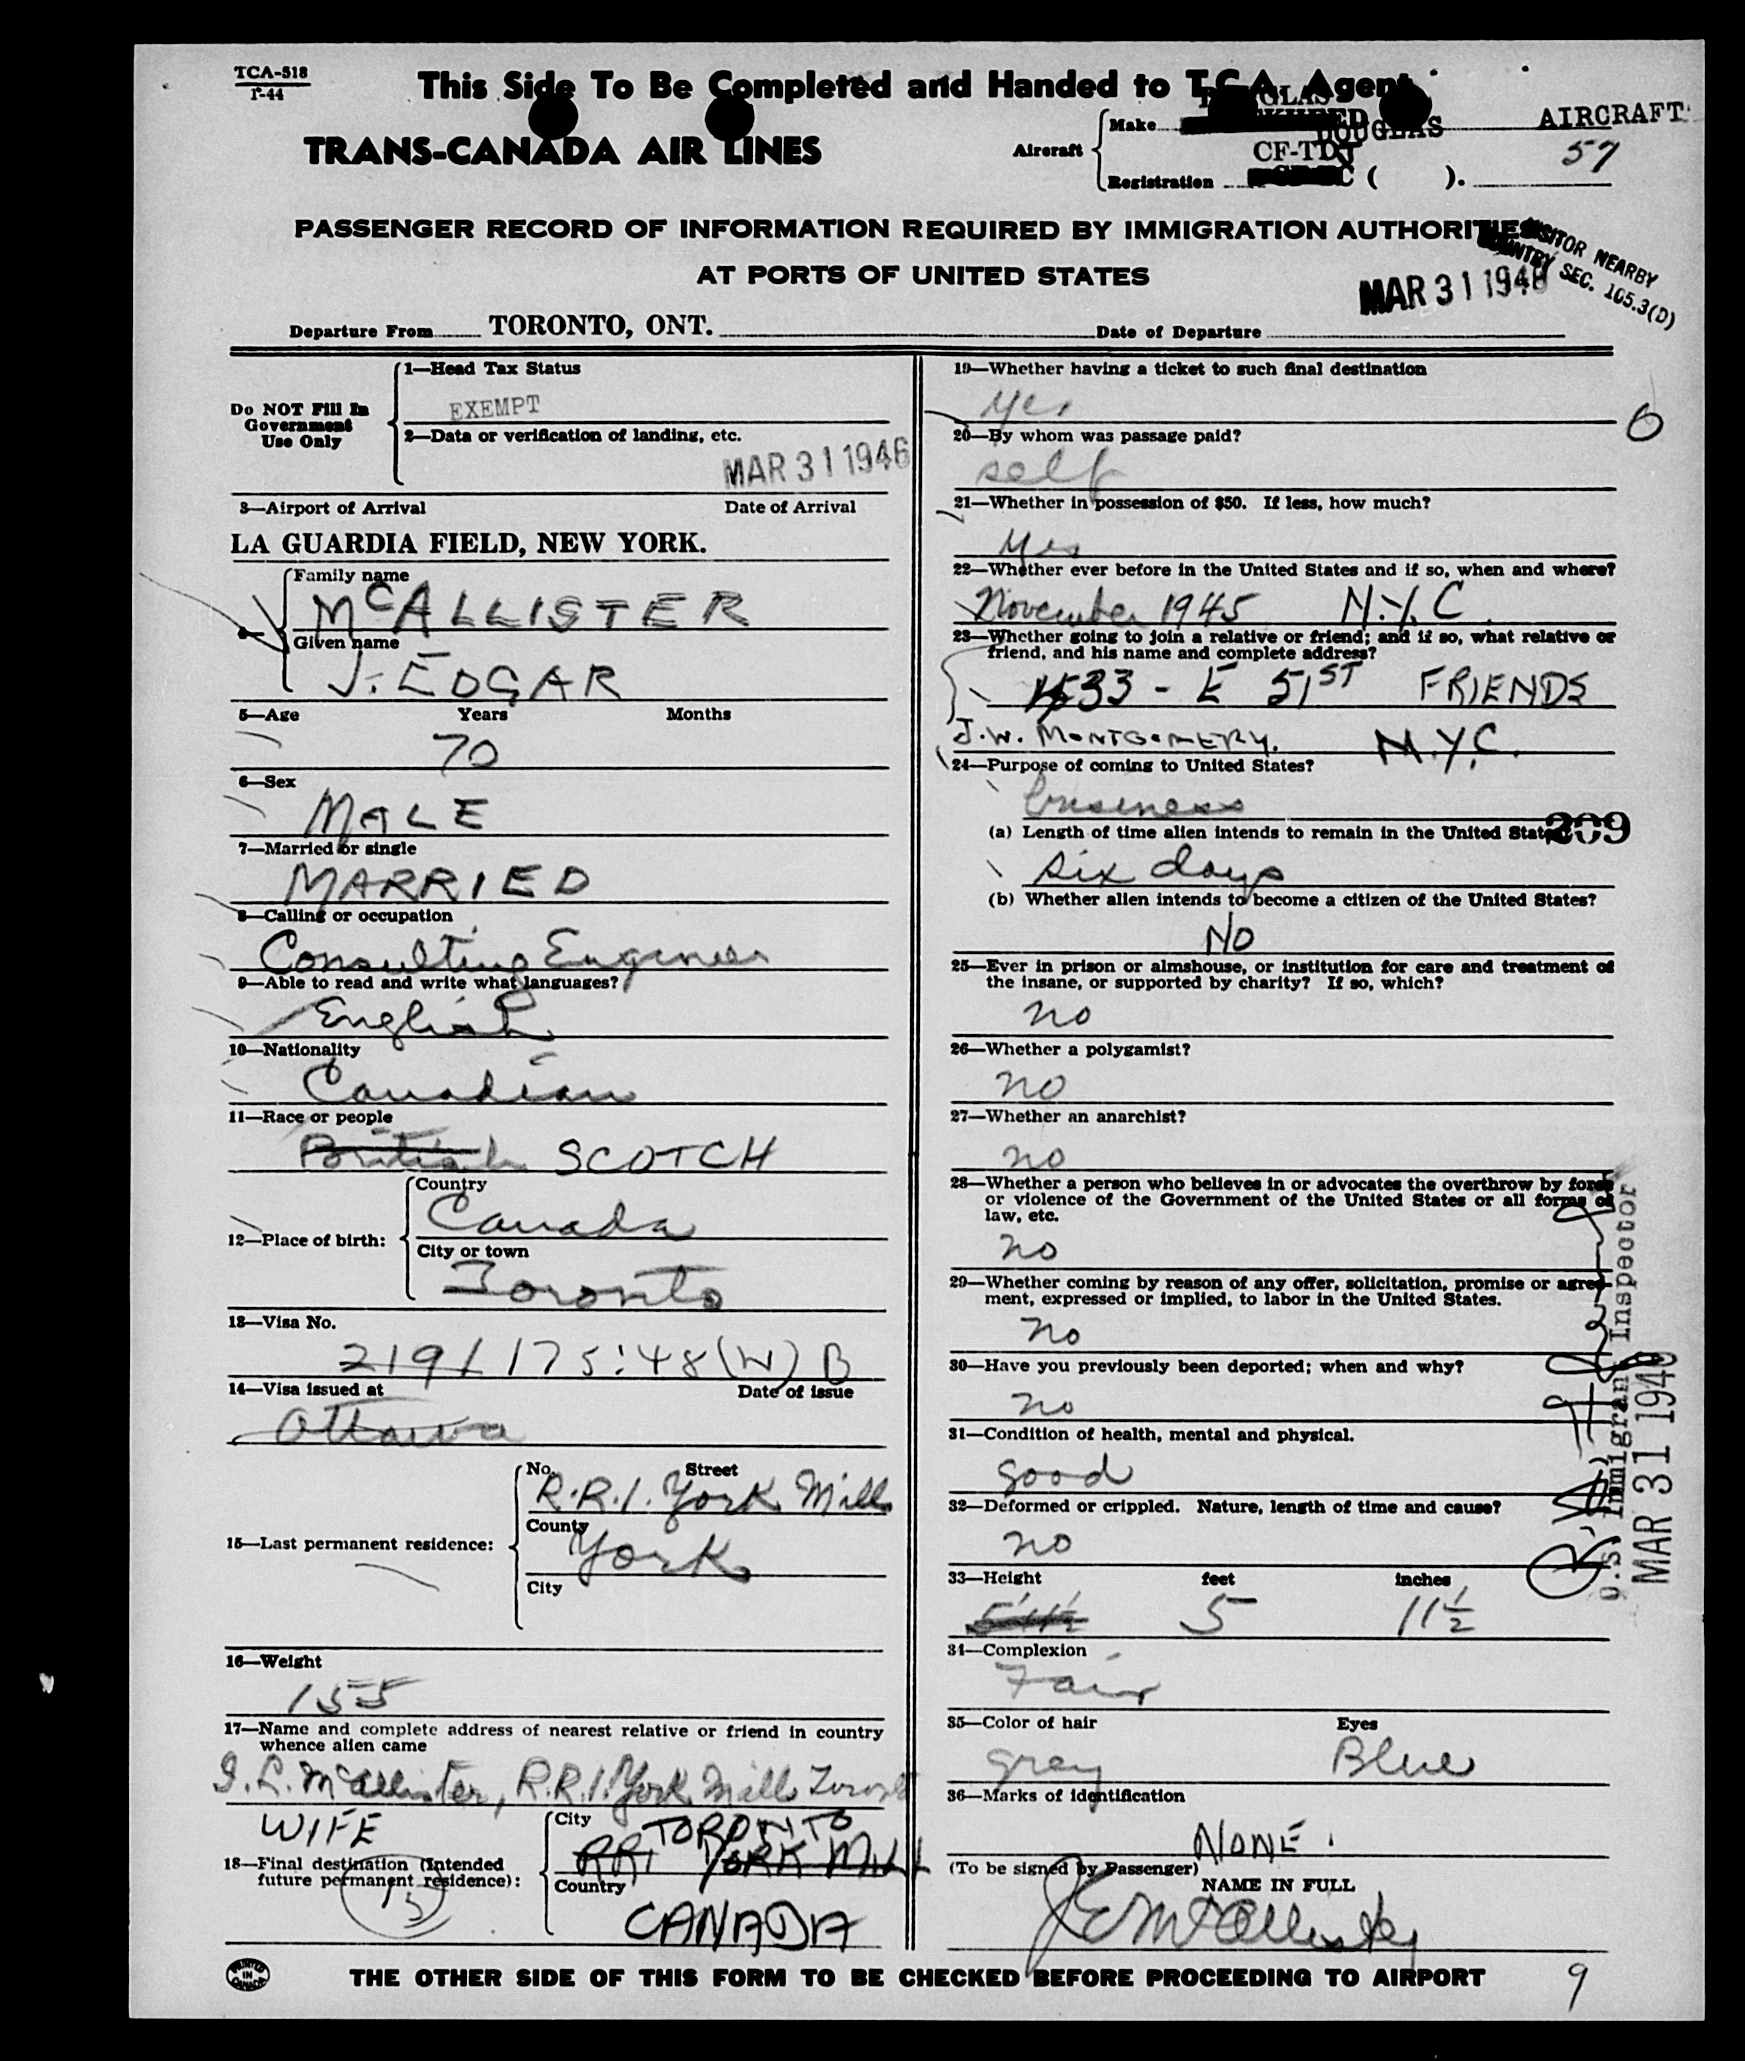 TCA-518
T-44
This Side To Be Completed and Handed to T.C.A. Agent
TRANS-CANADA AIR LINES
Aircraft
Make DOUGLAS AIRCRAFT
CF-TDJ 57
Registration ( ).
PASSENGER RECORD OF INFORMATION REQUIRED BY IMMIGRATION AUTHORITIES
AT PORTS OF UNITED STATES
VISITOR NEARBY
COUNTRY SEC. 105.3(D)
MAR 31 1946
Departure From TORONTO, ONT. Date of Departure
Do NOT Fill In
Government
Use Only
1—Head Tax Status
EXEMPT
2—Data or verification of landing, etc.
MAR 31 1946
3—Airport of Arrival Date of Arrival
LA GUARDIA FIELD, NEW YORK.
4—
Family name
McALLISTER
Given name
J. EDGAR
5—Age Years Months
70
6—Sex
MALE
7—Married or single
MARRIED
8—Calling or occupation
Consulting Engineer
9—Able to read and write what languages?
English
10—Nationality
Canadian
11—Race or people
British SCOTCH
12—Place of birth:
Country
Canada
City or town
Toronto
13—Visa No.
219/175:48(W)B
14—Visa issued at Date of issue
Ottawa
15—Last permanent residence:
No. Street
R.R.1. York Mills
County
York
City
16—Weight
155
17—Name and complete address of nearest relative or friend in country
whence alien came
McAllister, R.R.1. York Mills Toronto
WIFE
18—Final destination (Intended
future permanent residence):
City
TORONTO
RR1 YORK MILL
Country
CANADA
19—Whether having a ticket to such final destination
yes
20—By whom was passage paid?
self
21—Whether in possession of $50. If less, how much?
yes
22—Whether ever before in the United States and if so, when and where?
November 1945 N.Y.C.
23—Whether going to join a relative or friend; and if so, what relative or
friend, and his name and complete address?
33 - E 51ST FRIENDS
J.W. MONTGOMERY. N.Y.C.
24—Purpose of coming to United States?
business
(a) Length of time alien intends to remain in the United States
209
six days
(b) Whether alien intends to become a citizen of the United States?
NO
25—Ever in prison or almshouse, or institution for care and treatment of
the insane, or supported by charity? If so, which?
no
26—Whether a polygamist?
no
27—Whether an anarchist?
no
28—Whether a person who believes in or advocates the overthrow by force
or violence of the Government of the United States or all forms of
law, etc.
no
29—Whether coming by reason of any offer, solicitation, promise or agree-
ment, expressed or implied, to labor in the United States.
no
30—Have you previously been deported; when and why?
no
31—Condition of health, mental and physical.
good
32—Deformed or crippled. Nature, length of time and cause?
no
33—Height feet inches
5'11½ 5 11½
34—Complexion
Fair
35—Color of hair Eyes
grey Blue
36—Marks of identification
NONE.
(To be signed by Passenger)
NAME IN FULL
J E McAllister
U.S. Immigrant Inspector
MAR 31 1946
PRINTED IN CANADA
THE OTHER SIDE OF THIS FORM TO BE CHECKED BEFORE PROCEEDING TO AIRPORT
9